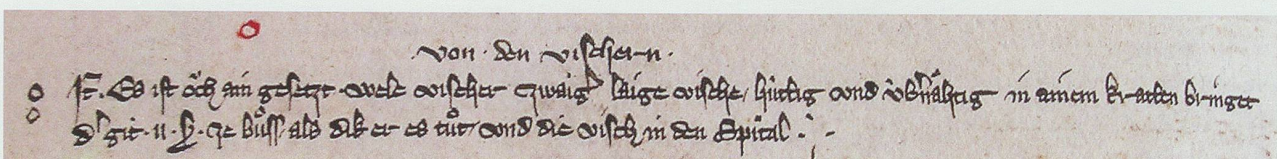 · von · den vischern ·
Es ist öch ain gesetzt · wele vischer czwaig laige vische, hüttig vnd in ainem kratten bringet
git · ii · ze bůss / als dik er es tůt / vnd die visch in den Spital ·